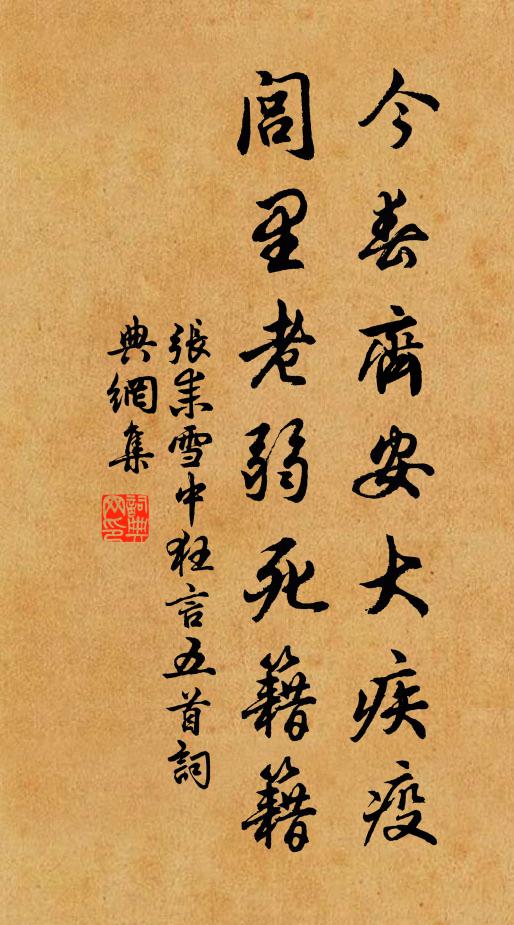 今春齊安大疾疫
閭里老弱死籍籍
張耒雪中狂言五首詞
典網集
詞典
网印